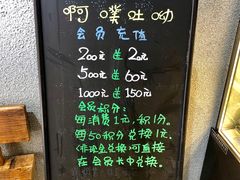 啊噗吐呦
会员充值
200元送20元
500元送60元
1000元送150元
会员积分:
每消费1元,积1分。
每50积分兑换1元。
(非现金兑换)可直接
在会员卡中兑换。